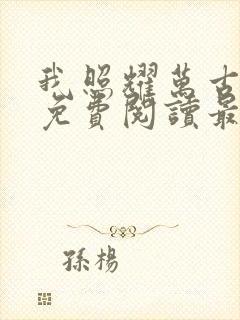 我照耀萬古
免費閱讀最
孫楊